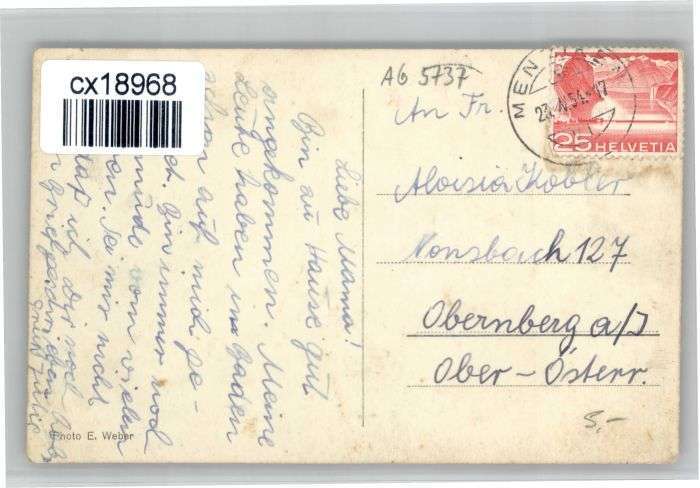 cx18968
AG 5737
MEN
23. 54.-17
25 HELVETIA
An Fr.
Aloisia Kobler
Nonsbach 127
Obernberg a/I
Ober-Österr.
5.-
Liebe Mama!
Bin zu Hause gut
angekommen. Meine
Leute haben im Baden
auf mich ge-
Bin immer noch
müde vom vielen
Sei mir nicht
daß ich dir noch
Photo E. Weber